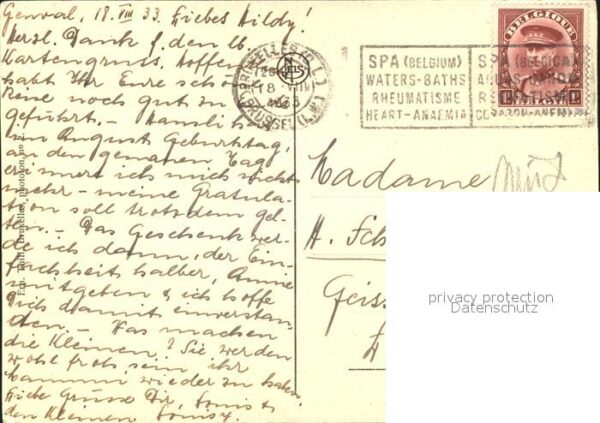 Genval, 18. VIII 33. Liebes Hildy!
Herzl. Dank f. den lb.
Kartengruss. Hoffen
habt Ihr Eure schö
Reise noch gut zu
geführt. – Hansli ha
im August Geburtstag,
an den genauen Tag
erinnere ich mich nicht
mehr – meine Gratula-
tion soll trotzdem gel-
ten. – Das Geschenk wer-
de ich dann, der Ein-
fachheit halber, Annie
mitgeben & ich hoffe
Dich damit einverstan-
den. – Was machen
die Kleinen? Sie werden
wohl froh sein, ihr
Mammi wieder zu haben
Liebe Grüsse Dir, Louis &
den Kleinen
BRUXELLES (Q.L.)
18 VIII
1933
BRUSSEL (L.W.)
SPA (BELGIUM)
WATERS-BATHS
RHEUMATISME
HEART-ANAEMIA
SPA (BELGICA)
BELGIQUE
Madame
H. Sch
Geiss
privacy protection
Datenschutz